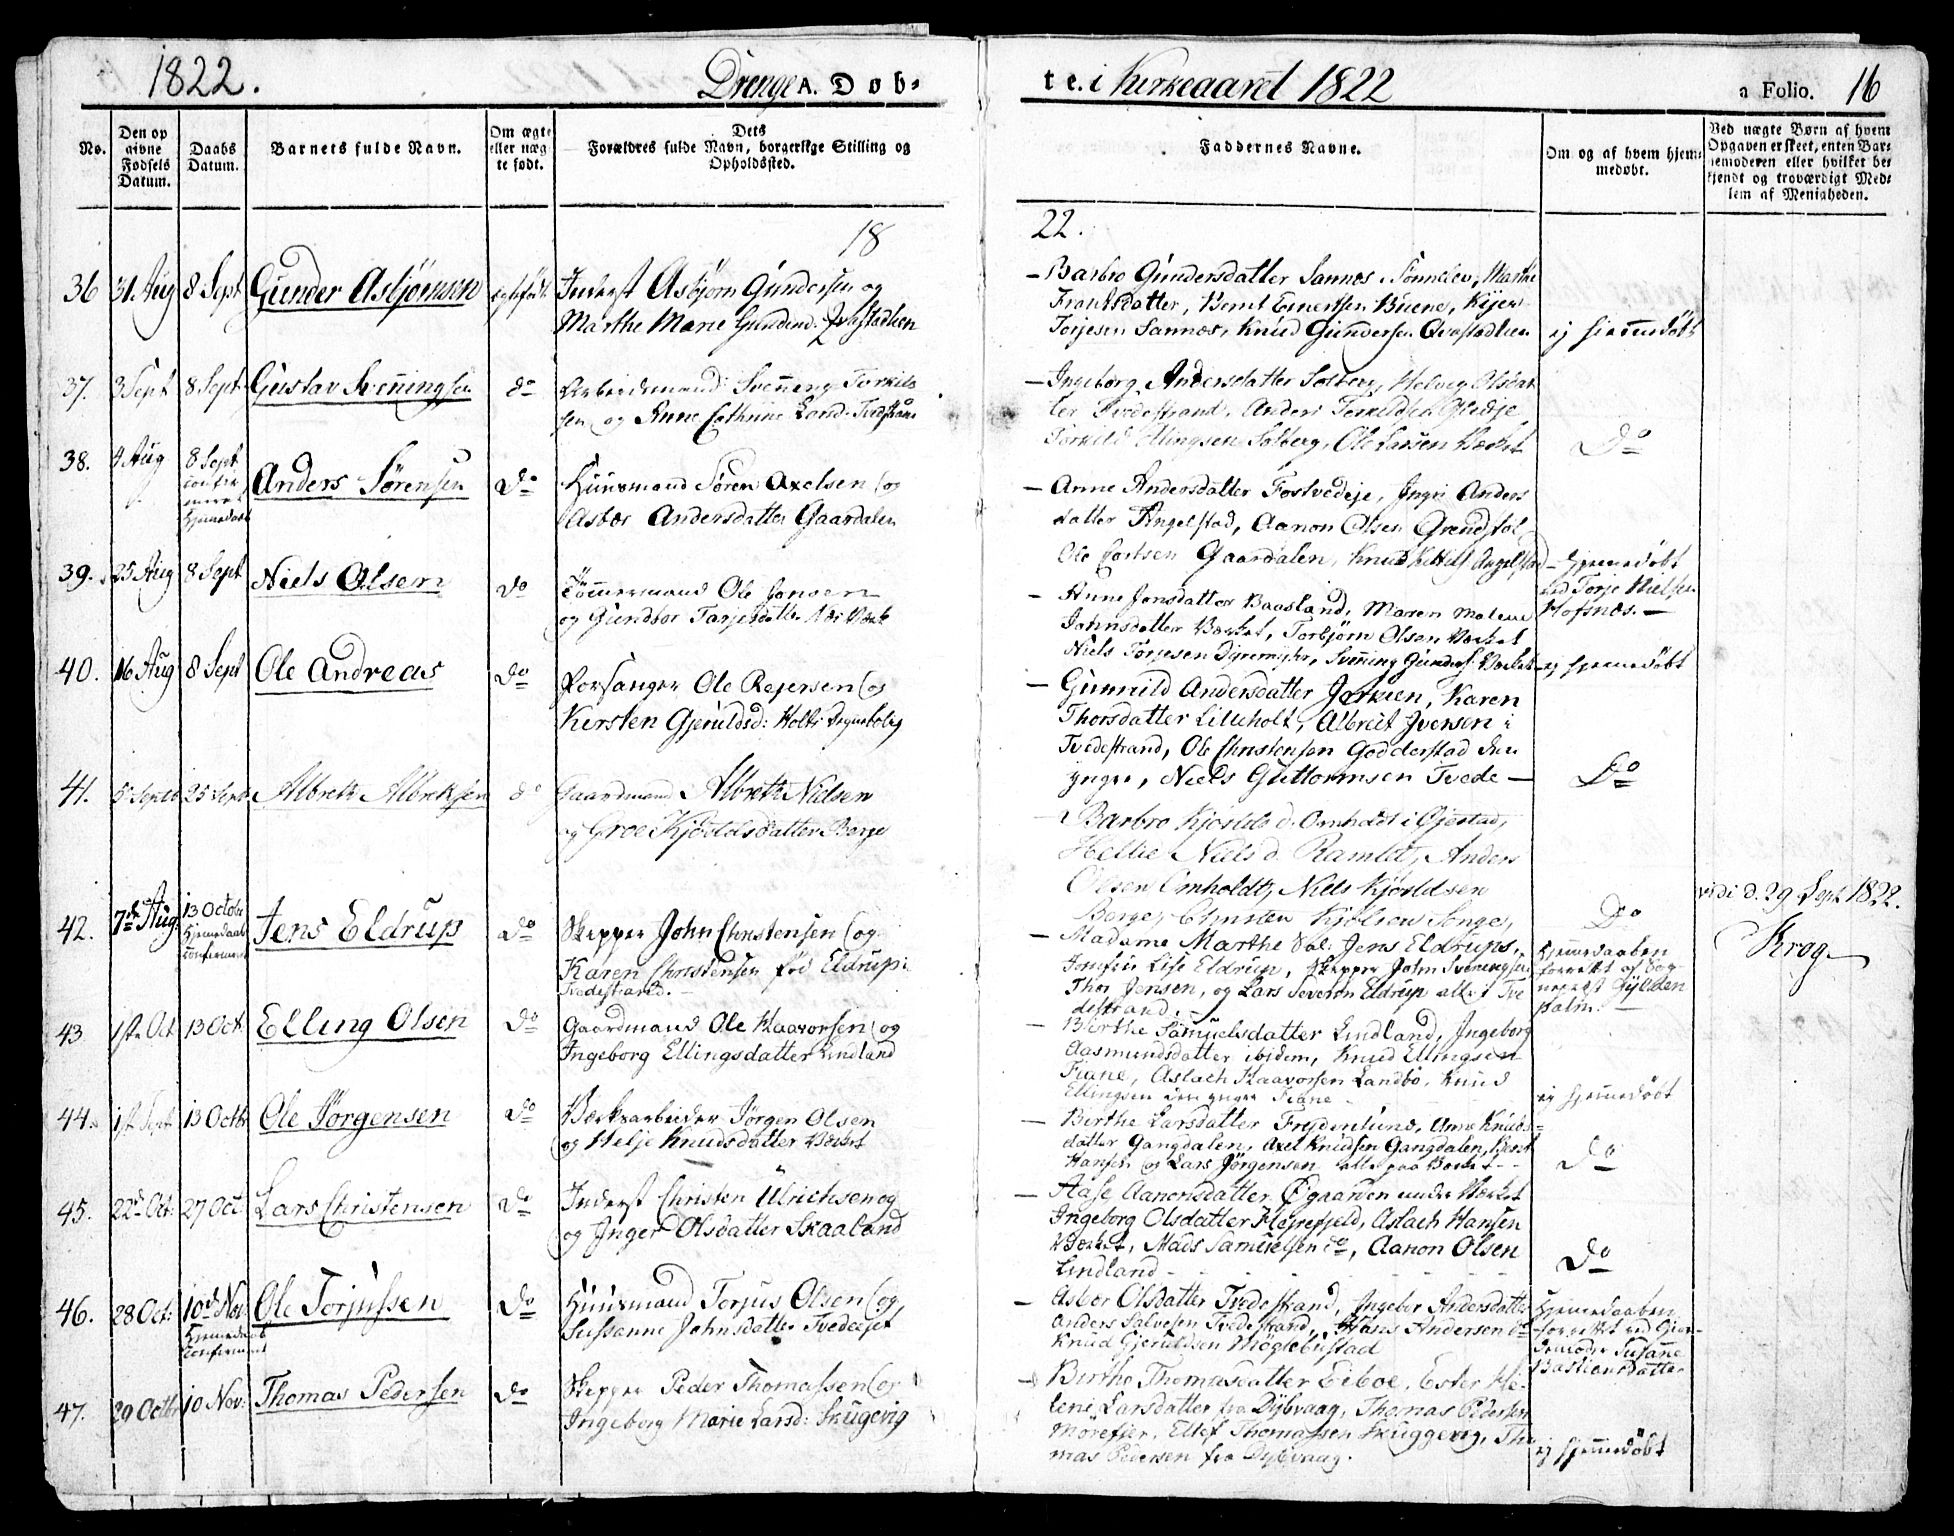 1822.
Drenge A. Døb-
te. i Kirkeaaret 1822
a Folio. 16
No.
Den op
givne
Fødsels
Datum.
Daabs
Datum.
Barnets fulde Navn.
Om ægte
eller næg
te født.
Dets
Forældres fulde Navn, borgerlige Stilling og
Opholdssted.
Faddernes Navne.
Om og af hvem hjem-
medøbt.
Ved uægte Børn af hvem
Opgaven er skeet, enten Bar-
nemoderen eller hvilket be-
kjendt og troværdigt Med-
lem af Menigheden.
18
22.
36 31 Aug 8 Sept Gunder Asbjörnsen ægtefödt
Inderst Asbjørn Gundersen og
Marthe Marie Gundersd. Qvastadlien
- Barbro Gundersdatter Sannes i Sönneløv, Marthe
Frantsdatter, Bernt Einertsen Buene,
Torjesen Sannes, Knud Gundersen Qvastadlien
ej hjemmedöbt
37. 3 Sept 8 Sept Gustav Svenningsen do
Arbeidsmand Svenning Terkils
sen og Anne Cathrine Larsd: Tvedestrand
- Ingeborg Andersdatter Solberg, Helvig Olsdat
ter Tvedestrand, Anders Terkildsen
Terkild Ellingsen Solberg, Ole Larsen Værket
Do
38. 4 Aug 8 Sept
confir
meret
Hjemedaab
Anders Sørensen Do
Huusmand Søren Axelsen og
Asbør Andersdatter Gaardalen
- Anne Andersdatter Fostvedeje, Ingri Anders
datter Angelstad, Aanon Olsen Grendstøl
Ole Gaardalen, Knud Angelstad
- Hjemedöbt
ved Torje Nielsen
Hofsnæs. -
39. 25 Aug 8 Sept Niels Olsen Do
Tömmermand Ole Jonsen
og Gundbor Tarjesdatter Næs Værk
- Anne Jonsdatter Baasland, Maren Malene
Johnsdatter Værket, Torbjørn Olsen Værket
Niels Torjesen Svenning Gunders: Værket
ej hjemedöbt
40. 16 Aug 8 Sept Ole Andreas Do
Forsanger Ole Rejersen og
Kirsten Gjeruldsd: Holts Degnebolig
- Gunnild Andersdatter Karen
Thorsdatter Lilleholt, Albrect Iversen i
Tvedestrand, Ole Christensen Godderstad den
yngre, Niels Guttormsen Tvede -
Do
41. 5 Septb 25 Sept Albreth Albrethsen do
Gaardmand Albreth Nielsen
og Groe Kjöstolsdatter Berge
- Barbro Kjöstolsd. Omholdt i Gjerstad,
Hellie Nielsd. Ramlet, Anders
Olsen Omholdt, Niels Kjöstelsen
Berge, Christen Songe,
Do
vidi d. 29 Sept 1822.
Krog
42. 7de Aug: 13 Octobr
Hjemedaab
confirmeret
Jens Eldrup Do
Skipper John Christensen og
Karen Christensen föd Eldrup i
Tvedestrand. -
- Madame Marthe Sal: Jens Eldrups,
Jomfru Lise Eldrup, Skipper John Svenningsen
Thor Jensen, og Lars Severin Eldrup alle i Tve
destrand.
Hjemedaaben
forrettet af Sog
nepræst Gylden
palm. -
43 1ste Oct 13 Oct Elling Olsen Do
Gaardmand Ole Haavorsen og
Ingeborg Ellingsdatter Lindland
- Birthe Samuelsdatter Lindland, Ingeborg
Aasmundsdatter ibidem, Knud Ellingsen
Fiane, Aslach Haavorsen Landbö, Knud
Ellingsen den yngre Fiane
ej hjemedöbt
44. 1ste Sept 13 Octb Ole Jørgensen Do
Værksarbeider Jørgen Olsen
og Helje Knudsdatter Værket
- Birthe Larsdatter Anne Knuds-
datter Gangdalen, Axel Knudsen Gangdalen, Bernt
Hansen og Lars Jørgensen alle paa Værket - -
Do
45. 22de Oct: 27 Oct Lars Christensen Do
Inderst Christen Ulrichsen og
og Inger Olsdatter Skaaland
- Aase Aanonsdatter Øgaarden under Værket
Ingeborg Olsdatter Hejrefjeld, Aslach Hansen
Værket, Mads Samuelsen do, Aanon Olsen
Lindland -
Do
46. 28 Oct: 10de Nov:
Hjemedaab
Confirmeret
Ole Torjussen Do
Huusmand Torjus Olsen og
Sussanne Johnsdatter Tvedeejet
- Asbor Olsdatter Tvedestrand, Ingebor Andersdatter
Anders Salvesen Tvedestrand, Hans Andersen do
Knud Gjeruldsen Møglebustad
Hjemedaaben
forrettet ved Gjor-
demoder Susanne
Bastiansdatter
47. 29 Octbr 10 Nov: Thomas Pedersen Do
Skipper Peder Thomassen og
Ingeborg Marie Larsd: Skugevig
- Birthe Thomasdatter Eiboe, Ester He-
lene Larsdatter fra Dybvaag, Thomas Pedersen
Mörefjer, Ellef Thomassen Skuggevig, Tho
mas Pedersen fra Dybvaag.
ej hjemmedöbt